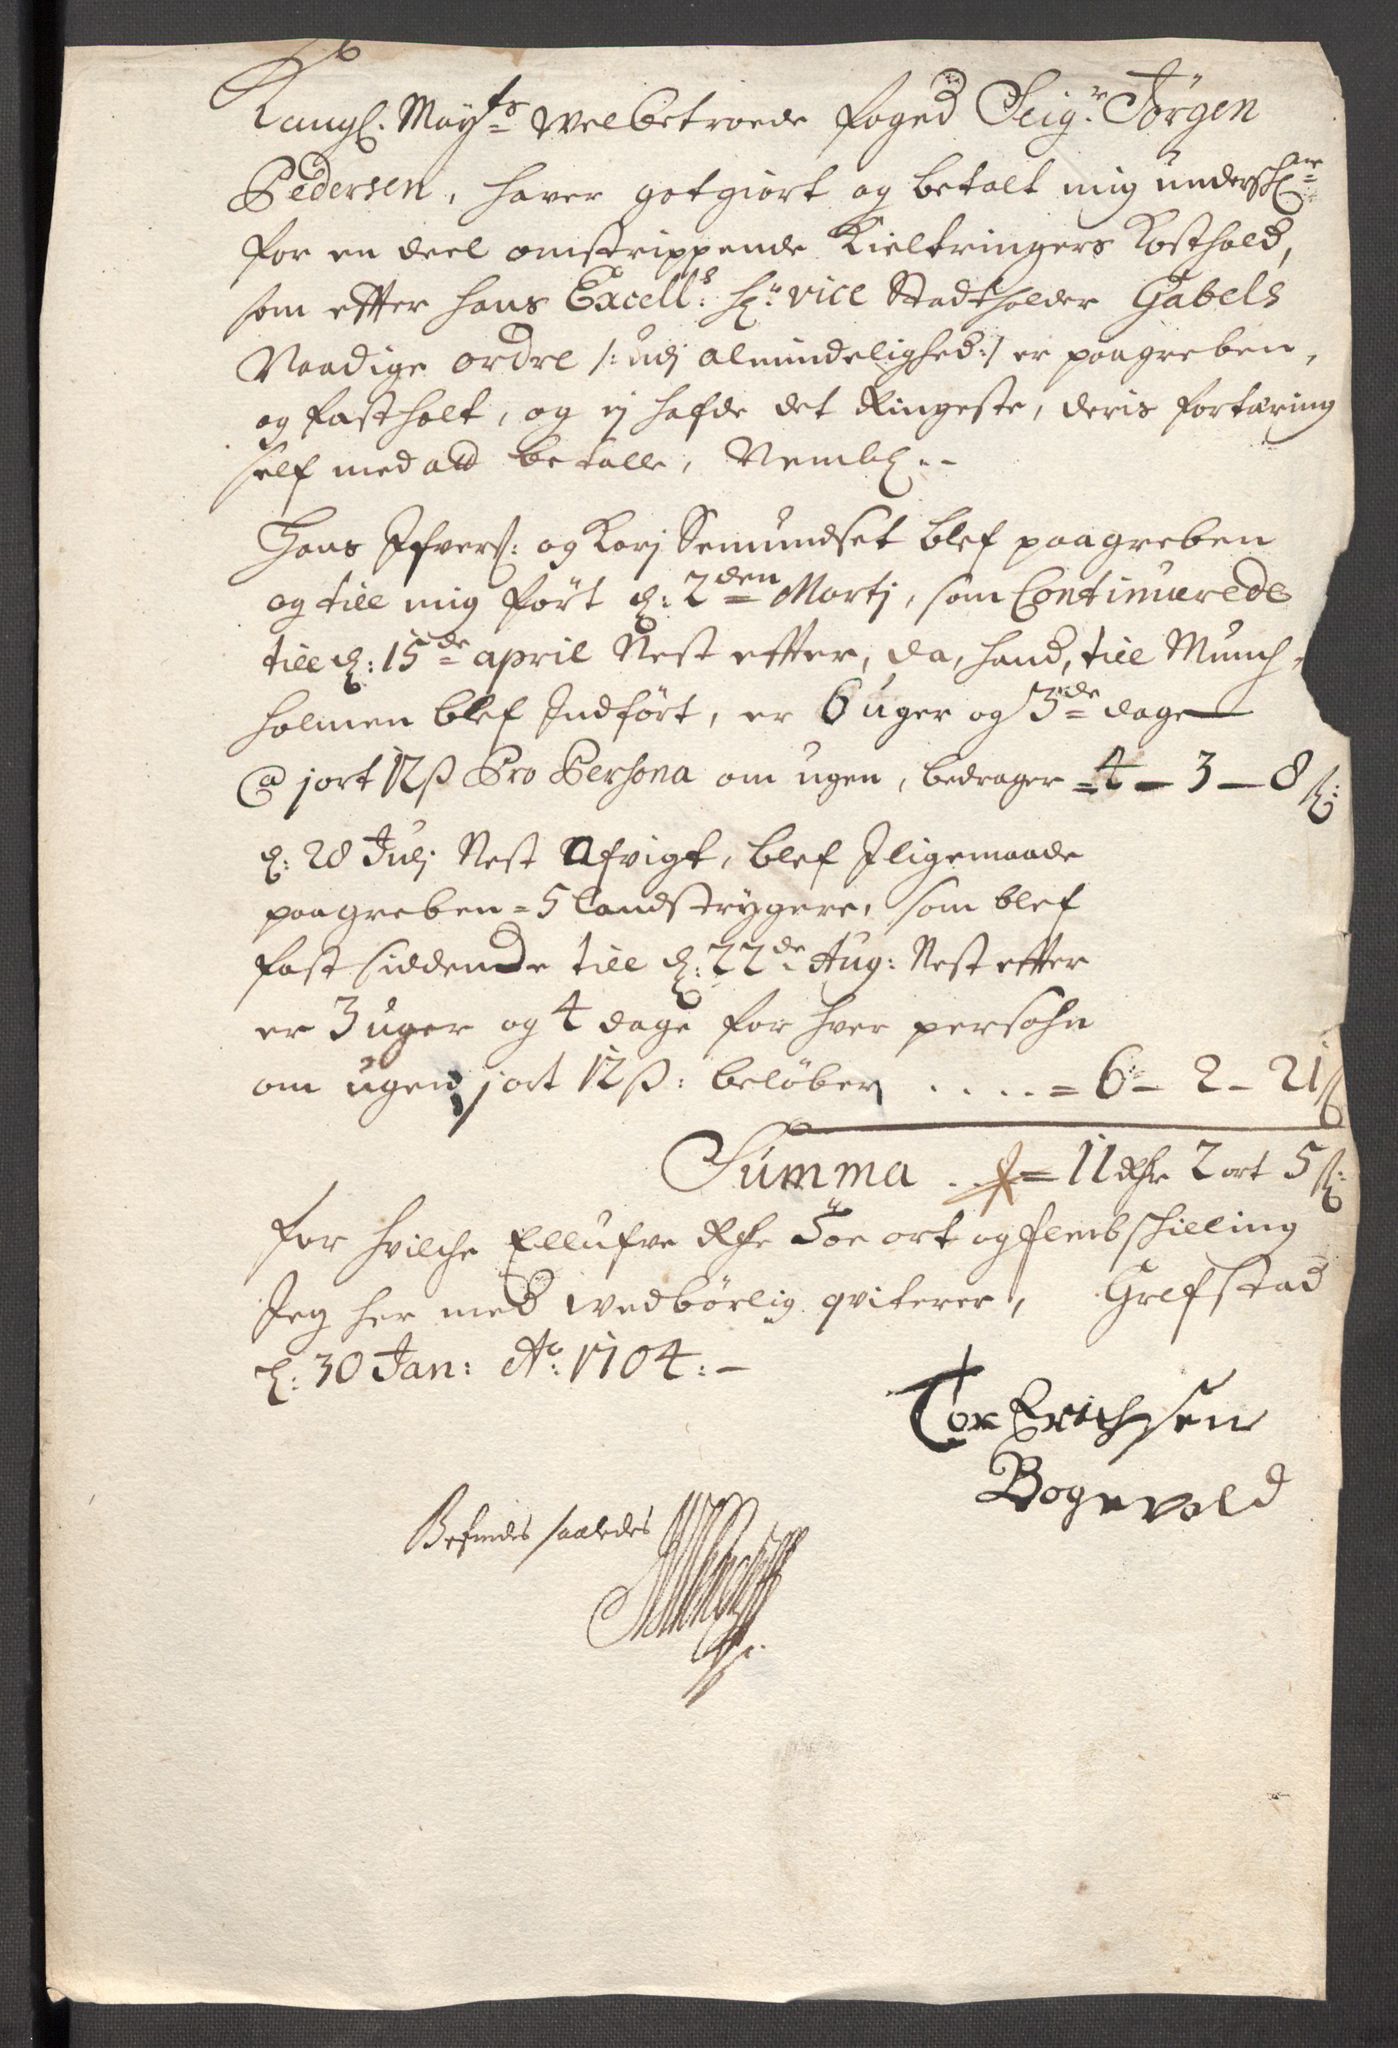 Kongl. Mayts Welbetroede foged Seigr. Jörgen
Pedersen, hafver gotgiort og betalt mig underschr.
for en deel omstrippende Kieltringers Kosthold,
som efter hans Excells. Hr. vice Stadtholder Gabels
Naadige ordre /: udj almindelighed :/ er paagreben,
og fastholt, og ej hafde det Ringeste, deris fortæring
self med att betalle, Nembl. -
Hans Ifvers: og Karj Semundset blef paagreben
og till mig fört d: 2den Martj, som Continuerede
till d: 15de april Nest efter, da, hand, till Munch-
holmen blef Indfört, er 6 uger og 3de dage
@ j ort 12 ß Pro Persona om ugen, bedrager = 4 - 3 - 8 ß:
d: 28 Julj Nest Afvigt, blef Iligemaade
paagreben = 5 Landstrygere, som blef
fast siddende till d: 22de Aug: Nest efter
er 3 uger og 4 dage for hver persohn
om ugen j ort 12 ß: belöber .... = 6 - 2 - 21 ß
Summa .. = 11 Rdr 2 ort 5 ß:
for hvilche Ellufve Rdr Toe ort og femb schilling
Jeg her med wedbörlig qviterer, Grefstad
d: 30 Jan: Ao: 1704: -
Tor Erichsen
Bogevold
Befindes saaledes